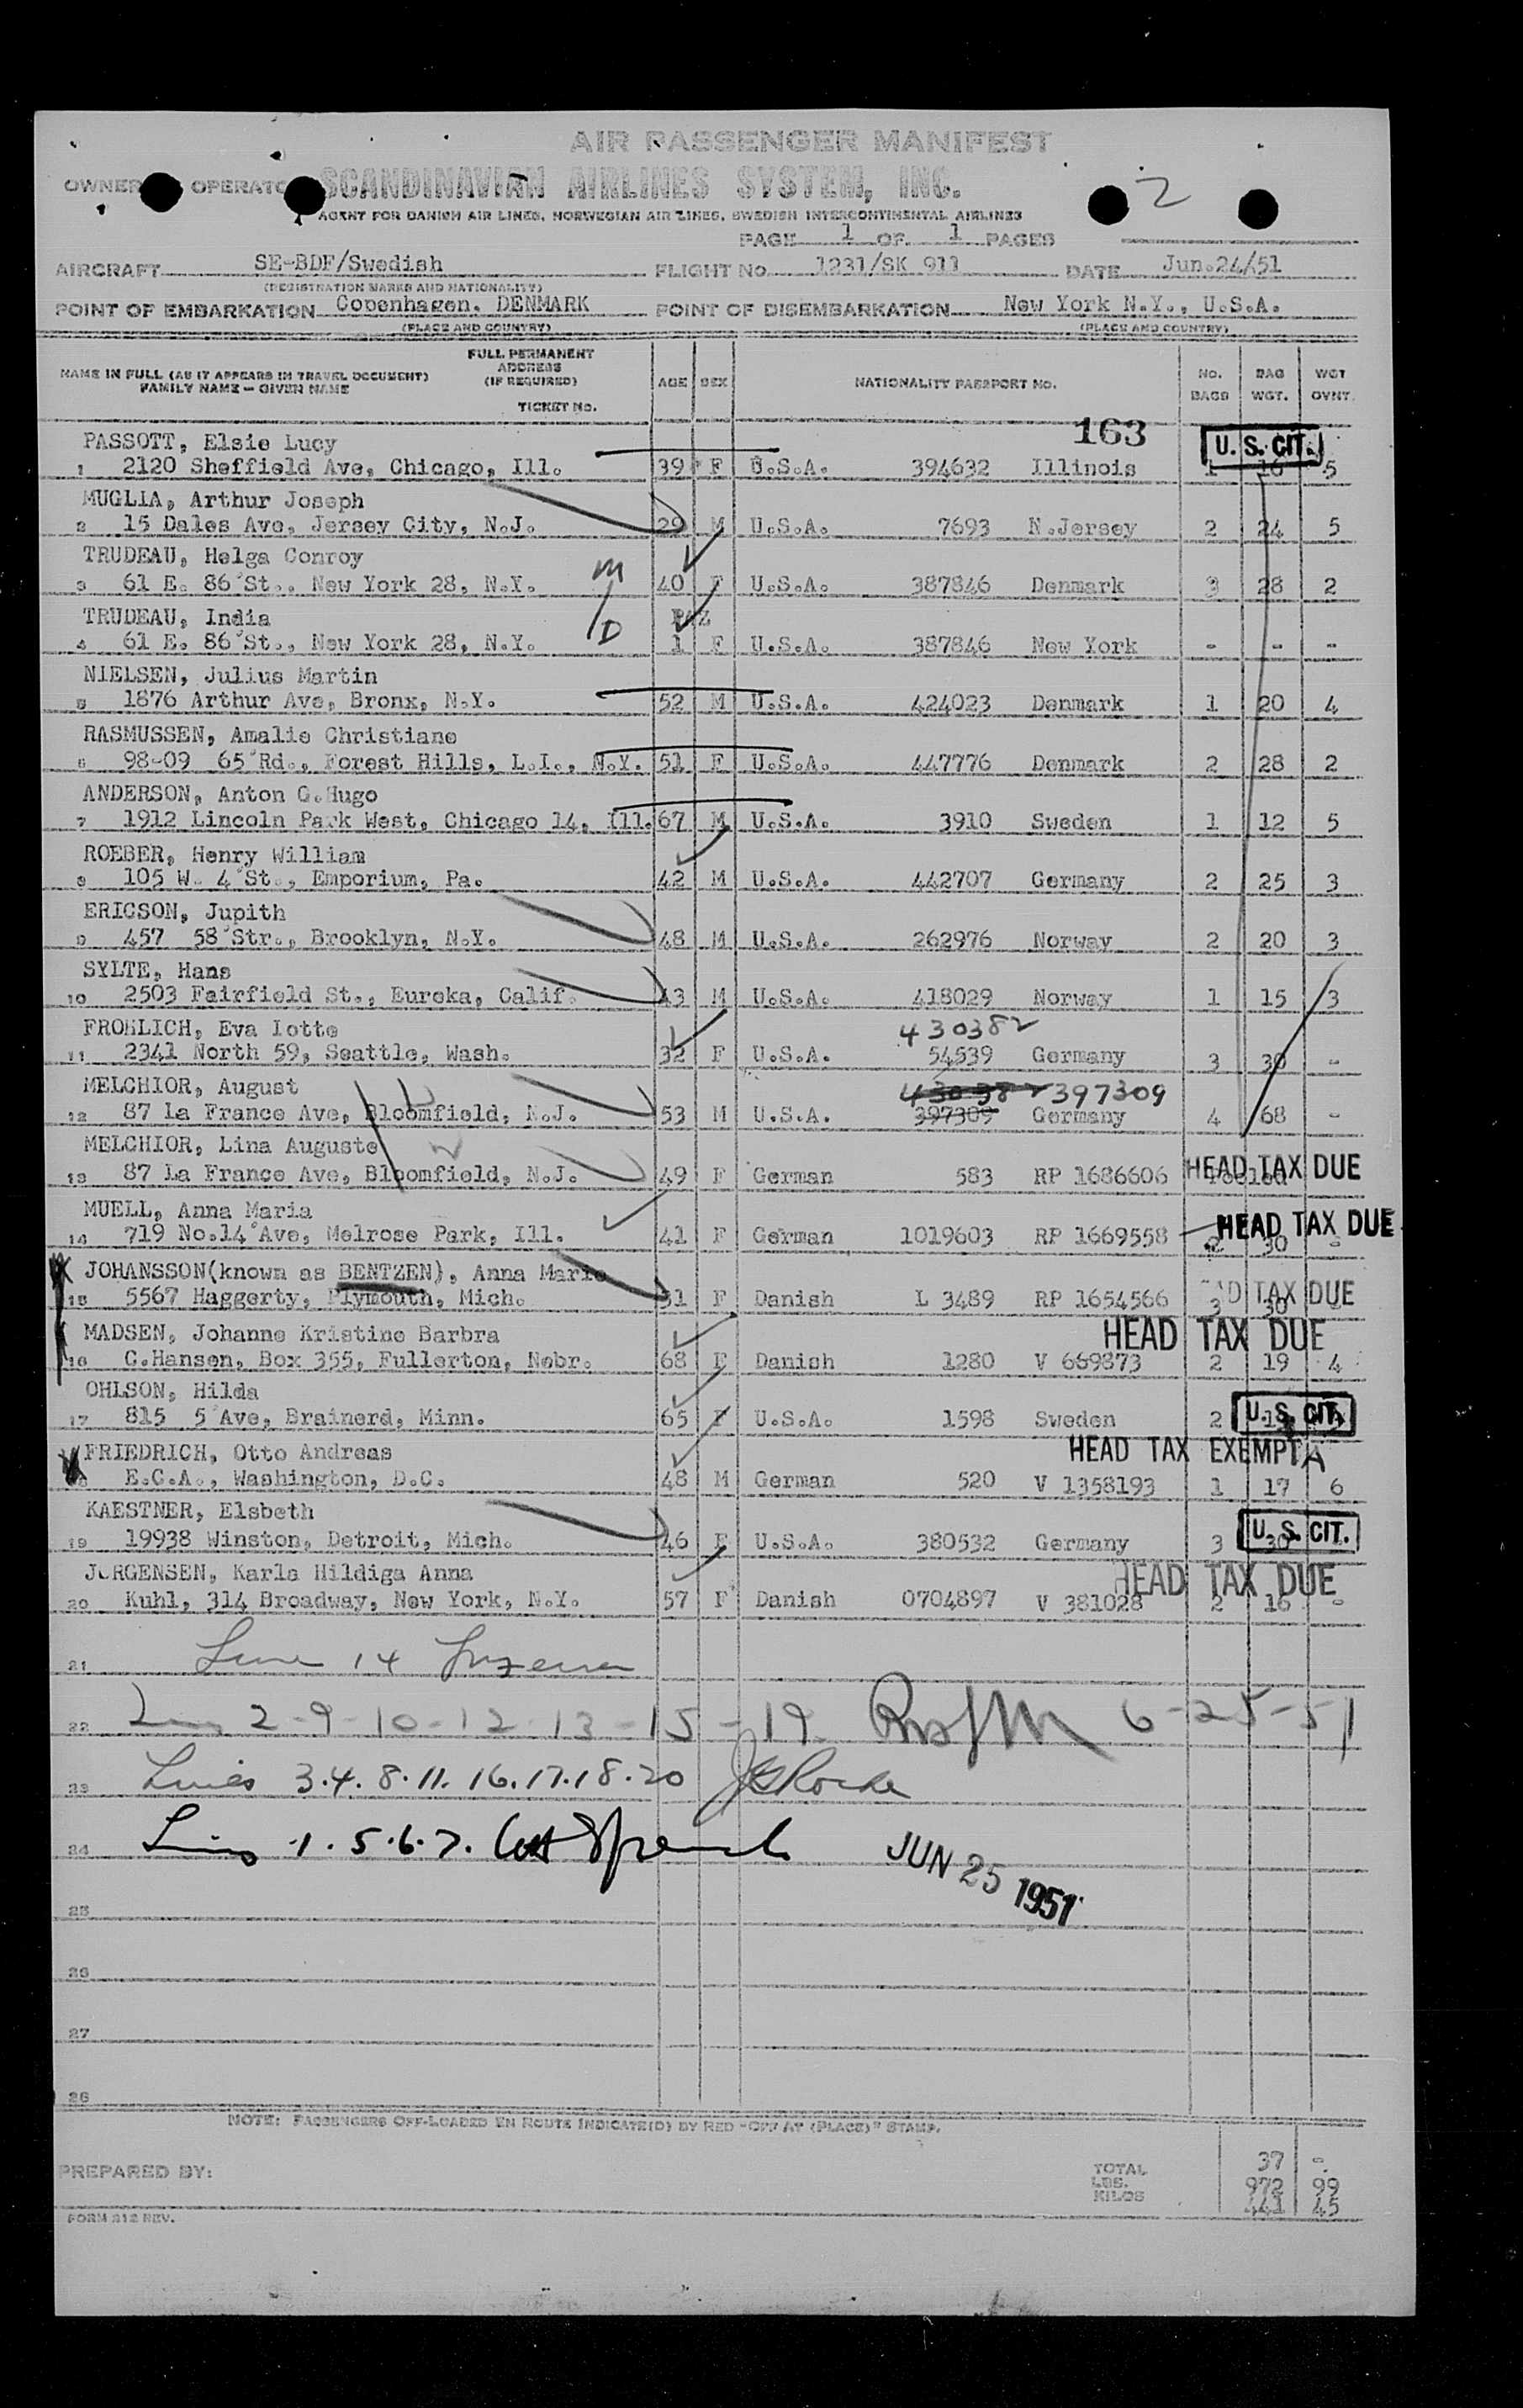 AIR PASSENGER MANIFEST
2
OWNER OPERATO SCANDINAVIAN AIRLINES SYSTEM, INC.
AGENT FOR DANISH AIR LINES, NORWEGIAN AIR LINES, SWEDISH INTERCONTINENTAL AIRLINES
PAGE 1 OF 1 PAGES
AIRCRAFT SE-BDF/Swedish FLIGHT NO. 1231/SK 911 DATE Jun.24/51
(REGISTRATION MARKS AND NATIONALITY)
POINT OF EMBARKATION Copenhagen. DENMARK POINT OF DISEMBARKATION New York N.Y., U.S.A.
(PLACE AND COUNTRY) (PLACE AND COUNTRY)
NAME IN FULL (AS IT APPEARS IN TRAVEL DOCUMENT) FAMILY NAME - GIVEN NAME FULL PERMANENT ADDRESS (IF REQUIRED) TICKET NO. AGE SEX NATIONALITY PASSPORT NO. NO. BAGS BAG WGT. WGT OVNT.
163 U. S. CIT.
PASSOTT, Elsie Lucy
1 2120 Sheffield Ave, Chicago, Ill. 39 F U.S.A. 394632 Illinois 1 16 5
MUGLIA, Arthur Joseph
2 15 Dales Ave, Jersey City, N.J. 29 M U.S.A. 7693 N.Jersey 2 24 5
TRUDEAU, Helga Conroy
3 61 E. 86°St., New York 28, N.Y. M 40 F U.S.A. 387846 Denmark 3 28 2
TRUDEAU, India
4 61 E. 86°St., New York 28, N.Y. D 1 F U.S.A. 387846 New York - - -
NIELSEN, Julius Martin
5 1876 Arthur Ave, Bronx, N.Y. 52 M U.S.A. 424023 Denmark 1 20 4
RASMUSSEN, Amalie Christiane
6 98-09 65°Rd., Forest Hills, L.I., N.Y. 51 F U.S.A. 447776 Denmark 2 28 2
ANDERSON, Anton G.Hugo
7 1912 Lincoln Park West, Chicago 14, Ill. 67 M U.S.A. 3910 Sweden 1 12 5
ROEBER, Henry William
8 105 W. 4°St., Emporium, Pa. 42 M U.S.A. 442707 Germany 2 25 3
ERICSON, Jupith
9 457 58°Str., Brooklyn, N.Y. 48 M U.S.A. 262976 Norway 2 20 3
SYLTE, Hans
10 2503 Fairfield St., Eureka, Calif. 43 M U.S.A. 418029 Norway 1 15 3
FROHLICH, Eva Lotte 430382
11 2341 North 59, Seattle, Wash. 32 F U.S.A. 54539 Germany 3 30 -
MELCHIOR, August 430382 397309
12 87 La France Ave, Bloomfield, N.J. 53 M U.S.A. 397309 Germany 4 68 -
MELCHIOR, Lina Auguste
13 87 La France Ave, Bloomfield, N.J. 49 F German 583 RP 1686606 HEAD TAX DUE
MUELL, Anna Maria
14 719 No.14°Ave, Melrose Park, Ill. 41 F German 1019603 RP 1669558 HEAD TAX DUE 2 30 -
JOHANSSON(known as BENTZEN), Anna Marie
15 5567 Haggerty, Plymouth, Mich. 31 F Danish L 3489 RP 1654566 AD TAX DUE 3 30
MADSEN, Johanne Kristine Barbra HEAD TAX DUE
16 C.Hansen, Box 355, Fullerton, Nebr. 68 F Danish 1280 V 669873 2 19 4
OHLSON, Hilda
17 815 5°Ave, Brainerd, Minn. 65 F U.S.A. 1598 Sweden 2 U. S. CIT.
FRIEDRICH, Otto Andreas HEAD TAX EXEMPT
18 E.C.A., Washington, D.C. 48 M German 520 V 1358193 1 17 6
KAESTNER, Elsbeth
19 19938 Winston, Detroit, Mich. 46 F U.S.A. 380532 Germany 3 30 U. S. CIT.
JORGENSEN, Karla Hildiga Anna HEAD TAX DUE
20 Kuhl, 314 Broadway, New York, N.Y. 57 F Danish 0704897 V 381028 2 16 -
21 Line 14
22 Lines 2-9-10-12-13-15-19 6-25-51
23 Lines 3.4.8.11.16.17.18.20
24 Lines 1.5.6.7. JUN 25 1951
25
26
27
26
NOTE: PASSENGERS OFF-LOADED EN ROUTE INDICATE(D) BY RED "OFF AT (PLACE)" STAMP.
PREPARED BY: TOTAL 37 -
LBS. 972 99
KILOS 441 45
FORM 212 REV.